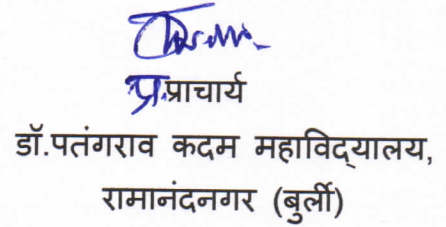 प्र.प्राचार्य
डॉ.पतंगराव कदम महाविद्यालय,
रामानंदनगर (बुर्ली)